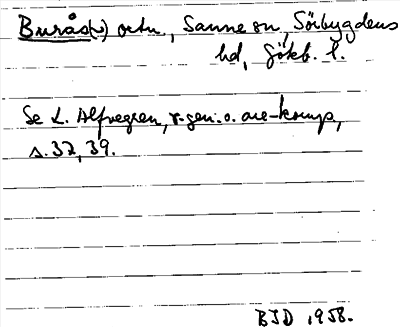 Burås(-) ortn., Sanne sn, Sörbygdens
hd, Götéb. l.
Se L. Alfvegren, r-gen. o. are-komp,
s. 32, 39.
BJD 1958.